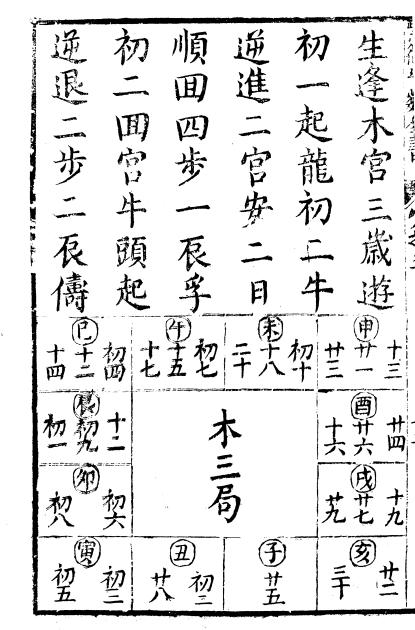 生逢木宮三歲遊
初一起龍初二牛
逆進二宮安二日
順囬四步一辰孚
初二囬宮牛頭起
逆退二步二辰儔
申
十三
廿一
廿三
未
初十
十八
二十
午
初七
十五
十七
巳
初四
十二
十四
酉
廿四
廿六
十六
辰
十二
初九
初一
木三局
戌
十九
廿七
廿九
卯
初六
初八
亥
廿二
三十
子
廿五
丑
初二
廿八
寅
初三
初五